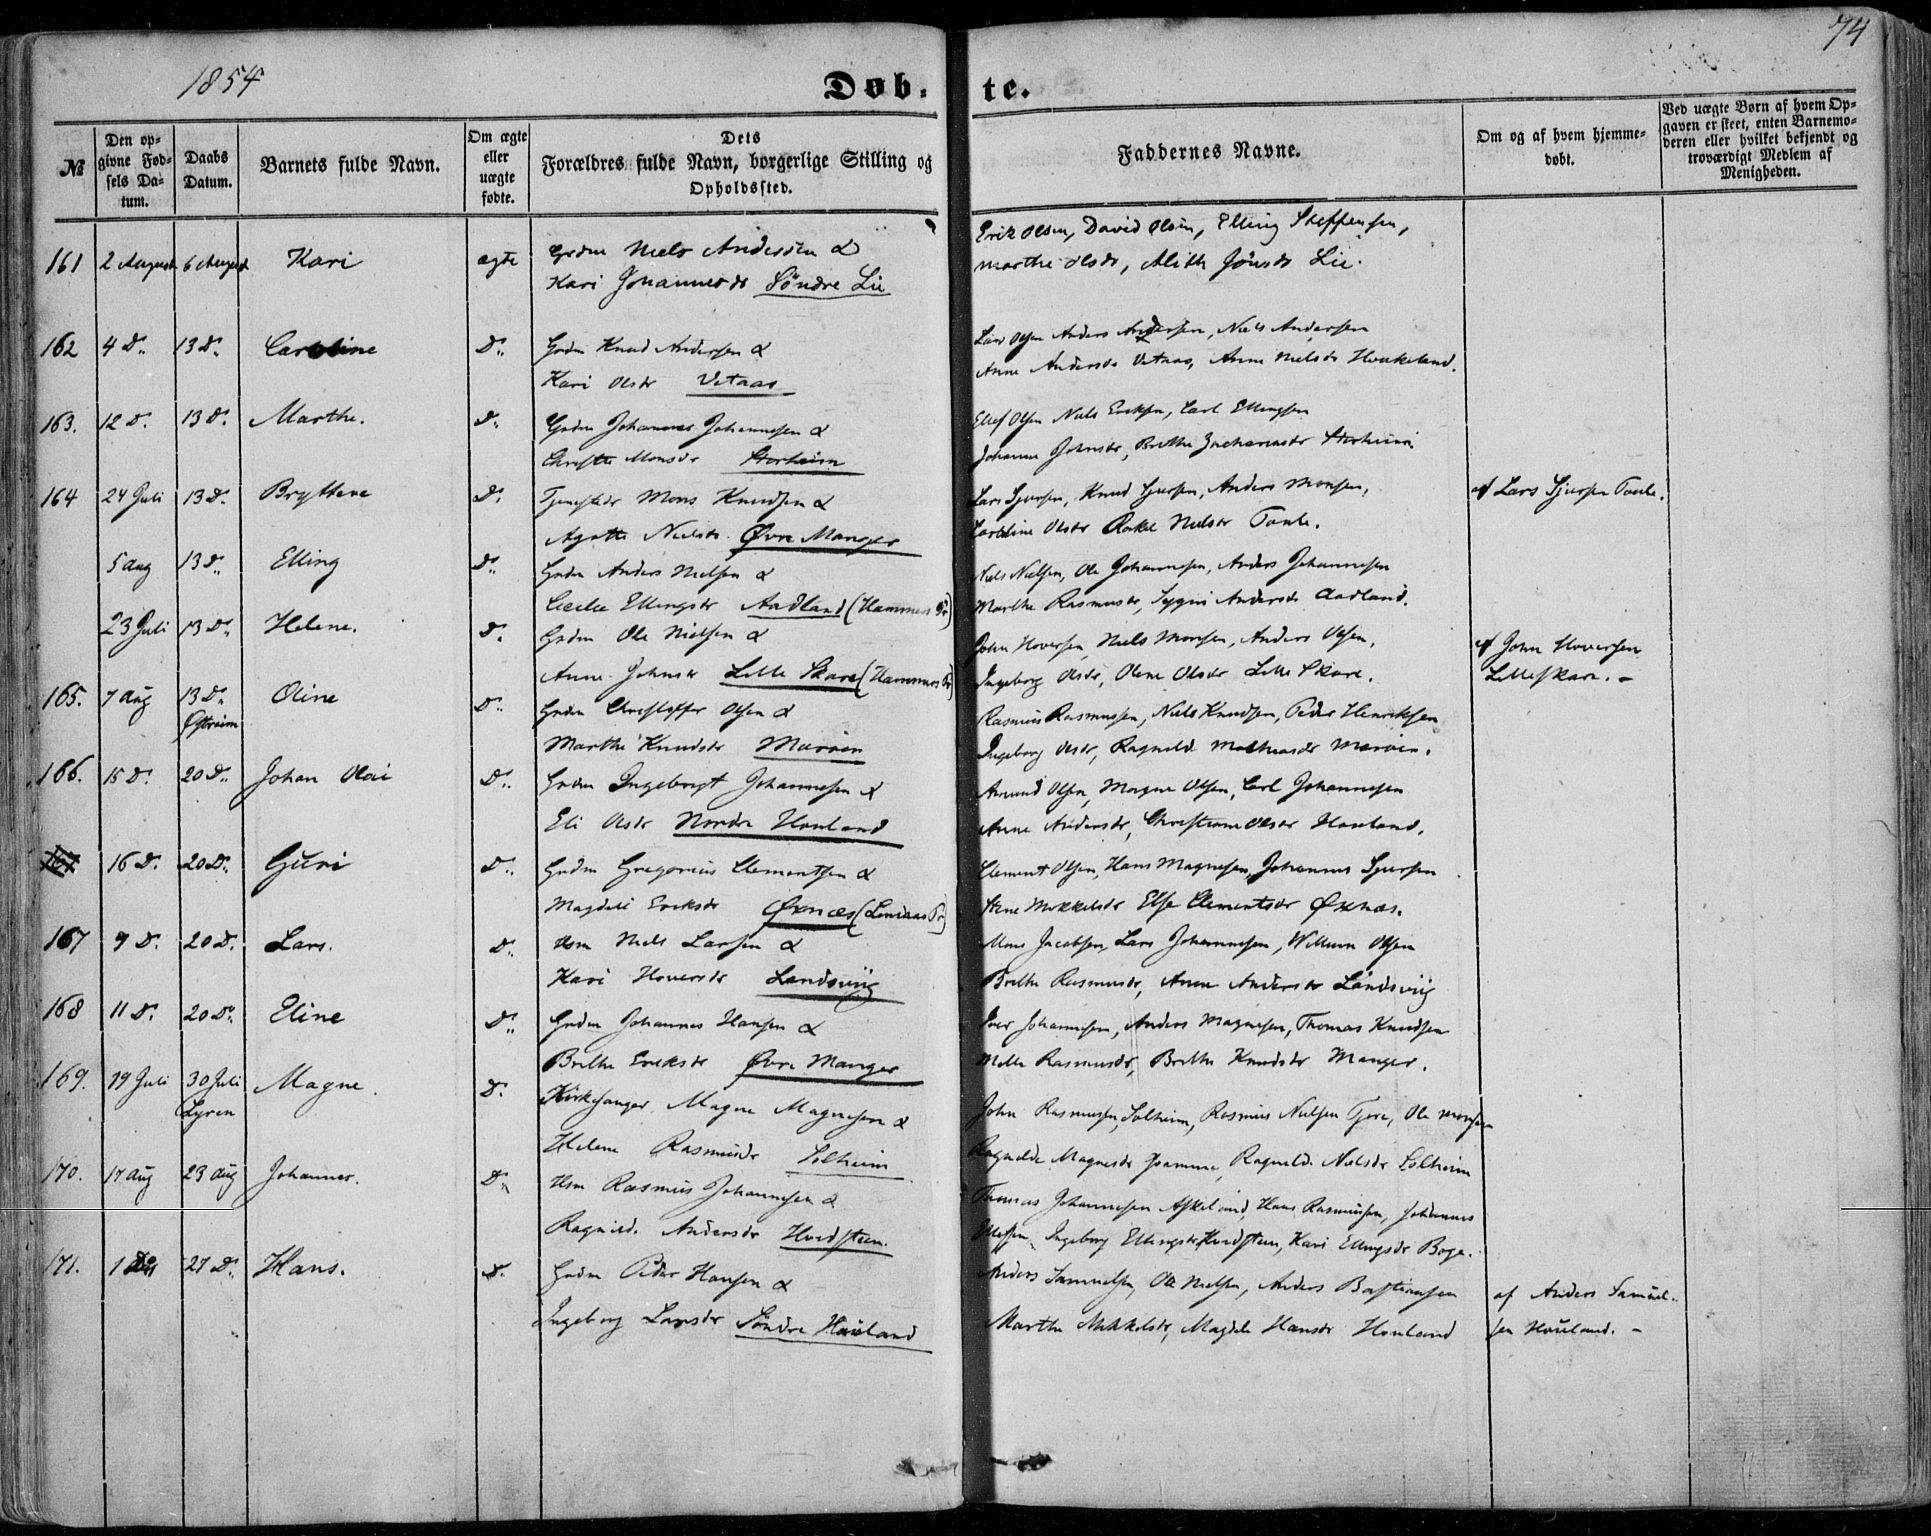 1854
Døb-
te.
74
№
Den op-
givne Fød-
sels Da-
tum.
Daabs
Datum.
Barnets fulde Navn.
Om ægte
eller
uægte
fødte.
Dets
Forældres fulde Navn, borgerlige Stilling og
Opholdssted.
Faddernes Navne.
Om og af hvem hjemme-
døbt.
Ved uægte Børn af hvem Op-
gaven er skeet, enten Barnemo-
deren eller hvilket bekjendt og
troværdigt Medlem af
Menigheden.
161 2 August 6 August Kari ægte Grdm Niels Andersen &
Kari Johannesdr Söndre Lie
Erik Olsen, David Olsen, Elling Steffensen,
Marthe Olsdr, Alith Jönsdr Lie.
162 4 D. 13 D. Caroline D. Grdm Knud Andersen &
Kari Olsdr Vetaas
Lars Olsen Anders Andersen, Niels Andersen
Anne Andersdr Vetaas, Anne Nielsdr Haukeland.
163. 12 D. 13 D. Marthe. D. Grdm Johannes Johannesen &
Christi Monsdr Storheim
Ellef Olsen Niels Ericksen, Carl Ellingsen
Johanne Johnsdr, Brithe Zachariasdr Storheim
164 24 Juli 13 D. Bryttene D. Mons Knudsen &
Agathe Nielsdr. Øvre Manger
Lars Sjursen, Knud Sjursen, Anders Monsen,
Caroline Olsdr Rakel Nielsdr Toule.
af Lars Sjursen Toule.
5 Aug 13 D. Elling D. Grdm Anders Nielsen &
Cecilie Ellingsdr Aadland (Hammers Pr)
Niels Nielsen, Ole Johannesen, Anders Johannesen
Marthe Rasmusdr, Sygni Andersdr Aadland.
23 Juli 13 D. Helene. D. Grdm Ole Nielsen &
Anne Johnsdr Lille Skare (Hammers Pr)
John Hoversen, Niels Monsen, Anders Olsen,
Ingeborg Olsdr, Olene Olsdr Lille Skare.
af John Hoversen
Lilleskare. -
165. 7 Aug 13 D. Oline D. Grdm Christoffer Olsen &
Østreim
Marthe Knudsdr Marøen
Rasmus Rasmussen, Niels Knudsen, Peder Henriksen
Ingeborg Olsdr, Ragnilde Mathiasdr Marøen.
166. 15 D. 20 D. Johan Olai D. Grdm Ingebregt Johannesen &
Eli Olsdr Nordre Houland
Amund Olsen, Magne Olsen, Carl Johannesen
Anne Andersdr, Christiane Olsdr Houland.
167 16 D. 20 D. Guri D. Grdm Gregorius Clementsen &
Magdeli Ericksdr Øxnæs (Lindaas Pr)
Clement Olsen, Hans Magnesen, Johannes Sjursen
Stene Mikkelsdr Else Clementsdr Øxnæs.
167 9 D. 20 D. Lars. D. Hsm Niels Larsen &
Kari Hoversdr Landsviig
Mons Jacobsen, Lars Johannesen, Willum Olsen
Brithe Rasmusdr, Anne Andersdr Landsviig
168 11 D. 20 D. Eline D. Grdm Johannes Hansen &
Brithe Ericksdr Øvre Manger
Iver Johannesen, Anders Magnesen, Thomas Knudsen
Mette Rasmusdr, Brithe Knudsdr Manger.
169. 19 Juli 30 Juli Magne. D. Kirkesanger Magne Magnesen &
Lyren
Helene Rasmusdr Solheim
John Rasmussen Solheim, Rasmus Nielsen Tjore, Ole Monsen
Ragnilde Magnesdr Qvamme, Ragnilde Nielsdr Solheim
170. 17 Aug 23 Aug Johannes. D. Hsm Rasmus Johannesen &
Ragnild. Andersdr Hordsteen.
Thomas Johannesen Askeland, Hans Rasmussen, Johannes
Ellefsen, Ingeborg Ellingsdr Hordsteen, Kari Ellingsdr Boge.
171. 1 D. 27 D. Hans. D. Grdm Peder Hansen &
Ingeborg Larsdr Söndre Houland
Anders Samuelsen, Ole Nielsen, Anders Bastiansen
Marthe Mikkelsdr, Magdeli Hansdr Houland
af Anders Samuel-
sen Houland. -